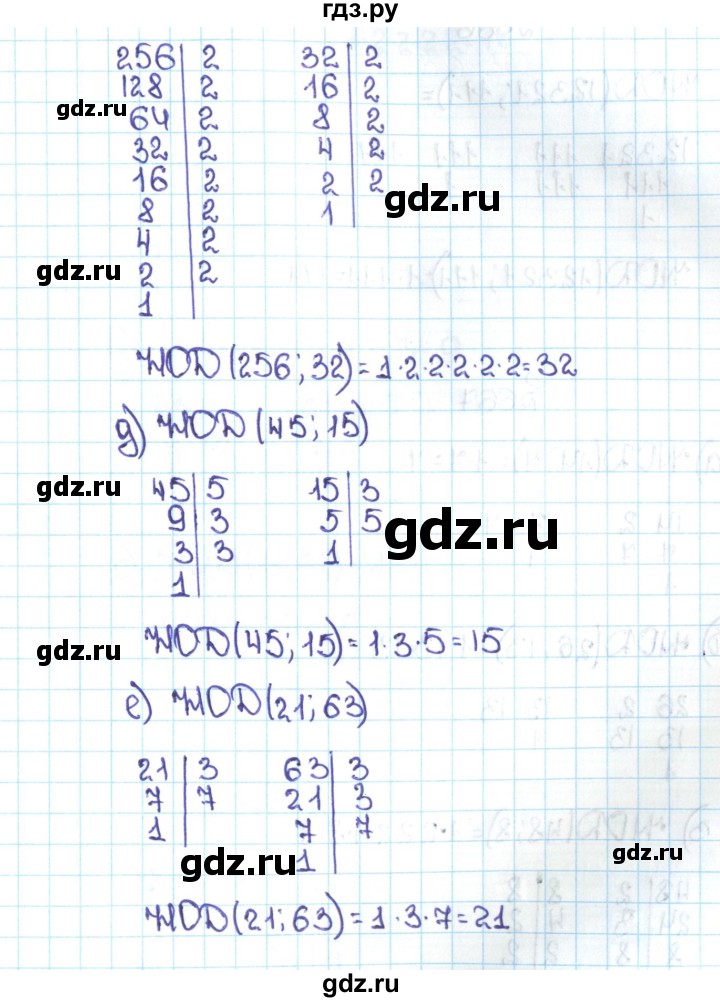 гдз.ру
256 | 2 32 | 2
128 | 2 16 | 2
gdz.ru
64 | 2 8 | 2
32 | 2 4 | 2
16 | 2 2 | 2
gdz.ru
8 | 2 1
4 | 2
gdz.ru
2 | 2
1
НОД(256; 32) = 1·2·2·2·2·2 = 32
д) НОД(45; 15)
gdz.ru
45 | 5 15 | 3
9 | 3 5 | 5
gdz.ru
3 | 3 1
1
gdz.ru
НОД(45; 15) = 1·3·5 = 15
е) НОД(21; 63)
21 | 3 63 | 3
7 | 7 21 | 3
1 7 | 7
gdz.ru
1
gdz.ru
НОД(21; 63) = 1·3·7 = 21
gdz.ru